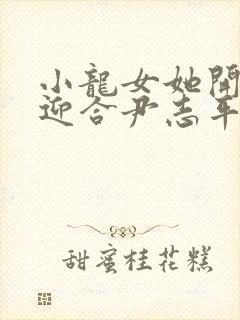 小龍女她開
迎合尹志平
甜蜜桂花糕